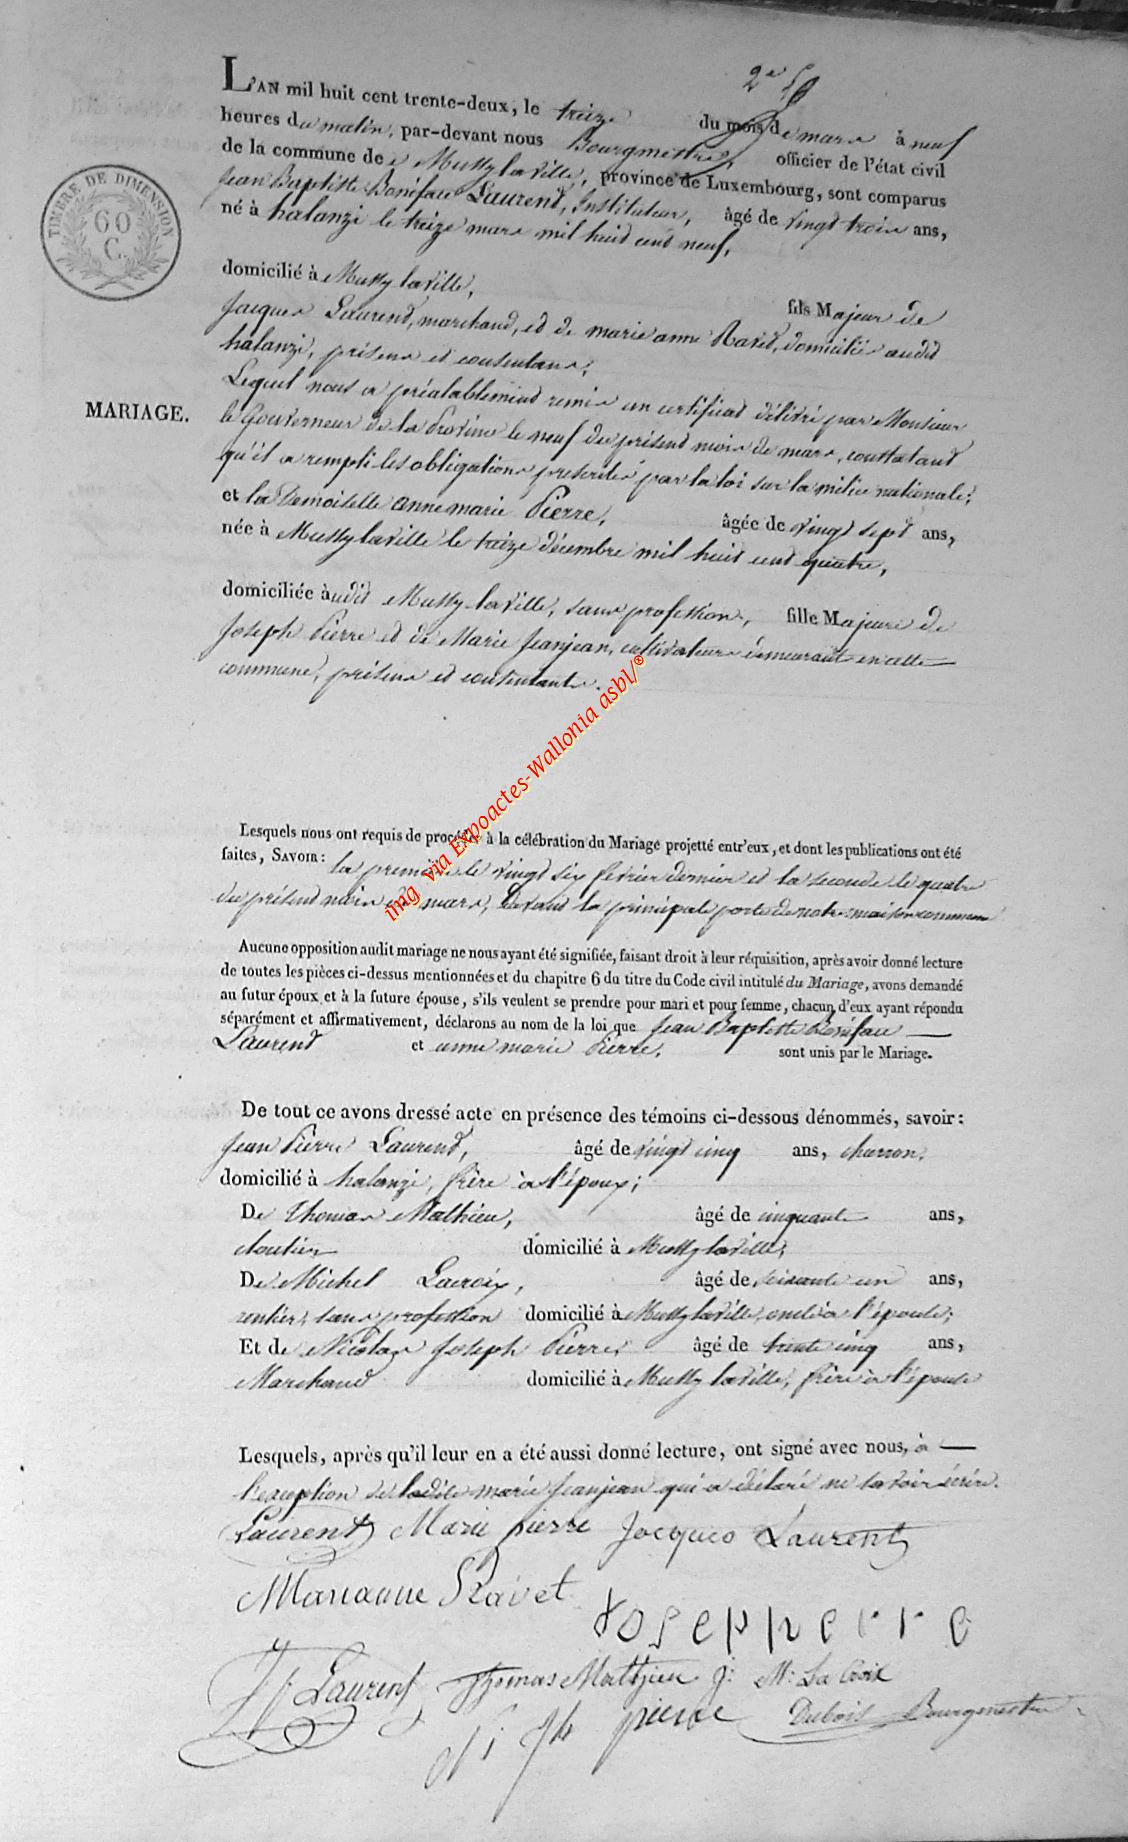 L'AN mil huit cent trente-deux, le treize du mois de mars à neuf
heures du matin, par-devant nous Bourgmestre, officier de l'état civil
de la commune de Mussy laville, province de Luxembourg, sont comparus
Jean Baptiste Boniface Laurend, Instituteur, âgé de vingt trois ans,
né à halanzi le treize mars mil huit cent neuf,
TIMBRE DE DIMENSION
60
C.
domicilié à Mussy laville, fils Majeur de
Jacques Laurend, marchand, et de marie anne Ravet, domiciliés audit
halanzi, présens et consentans;
Lequel nous a préalablement remis un certificat délivré par Monsieur
MARIAGE.
le Gouverneur de la Province le neuf du présent mois de mars, constatant
qu'il a rempli les obligations prescrites par la loi sur la milice nationale;
et la Demoiselle anne marie Pierre, âgée de vingt sept ans,
née à Mussy laville le treize décembre mil huit cent quatre,
domiciliée àudit Mussy laville, sans profession, fille Majeure de
Joseph Pierre et de Marie Jeanjean, cultivateurs demeurant en cette
commune, présens et consentants.
img via Expoactes-Wallonia asbl/®
Lesquels nous ont requis de procéder à la célébration du Mariage projetté entr'eux, et dont les publications ont été
faites, SAVOIR: la première le vingt six février dernier et la seconde le quatre
du présent mois de mars, devant la principale porte de notre maison commune
Aucune opposition audit mariage ne nous ayant été signifiée, faisant droit à leur réquisition, après avoir donné lecture
de toutes les pièces ci-dessus mentionnées et du chapitre 6 du titre du Code civil intitulé du Mariage, avons demandé
au futur époux et à la future épouse, s'ils veulent se prendre pour mari et pour femme, chacun d'eux ayant répondu
séparément et affirmativement, déclarons au nom de la loi que Jean Baptiste Boniface
Laurend et anne marie Pierre, sont unis par le Mariage.
De tout ce avons dressé acte en présence des témoins ci-dessous dénommés, savoir:
Jean Pierre Laurend, âgé de vingt cinq ans, charron,
domicilié à halanzi, frère à l'époux;
De Thomas Mathieu, âgé de cinquante ans,
cloutier domicilié à Mussy laville,
De Michel Lacroix, âgé de soixante un ans,
rentier, sans profession domicilié à Mussy laville, oncle à l'épouse;
Et de Nicolas Joseph Pierre, âgé de trente cinq ans,
Marchand domicilié à Mussy laville, frère à l'épouse
Lesquels, après qu'il leur en a été aussi donné lecture, ont signé avec nous, à
l'exception de ladite marie Jeanjean qui a déclaré ne savoir écrire.
Laurent Marie pierre Jacques Laurent
Marianne Ravet
Laurent Thomas Mathieu M: La Croix
pierre Dubois Bourgmestre